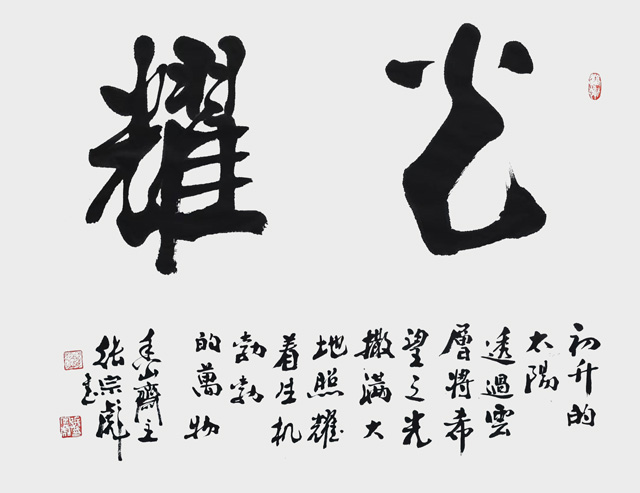 光耀
初升的
太陽
透過雲
層將希
望之光
撒滿大
地照耀
着生机
勃勃
的萬物
山齋主
张宗彪
书